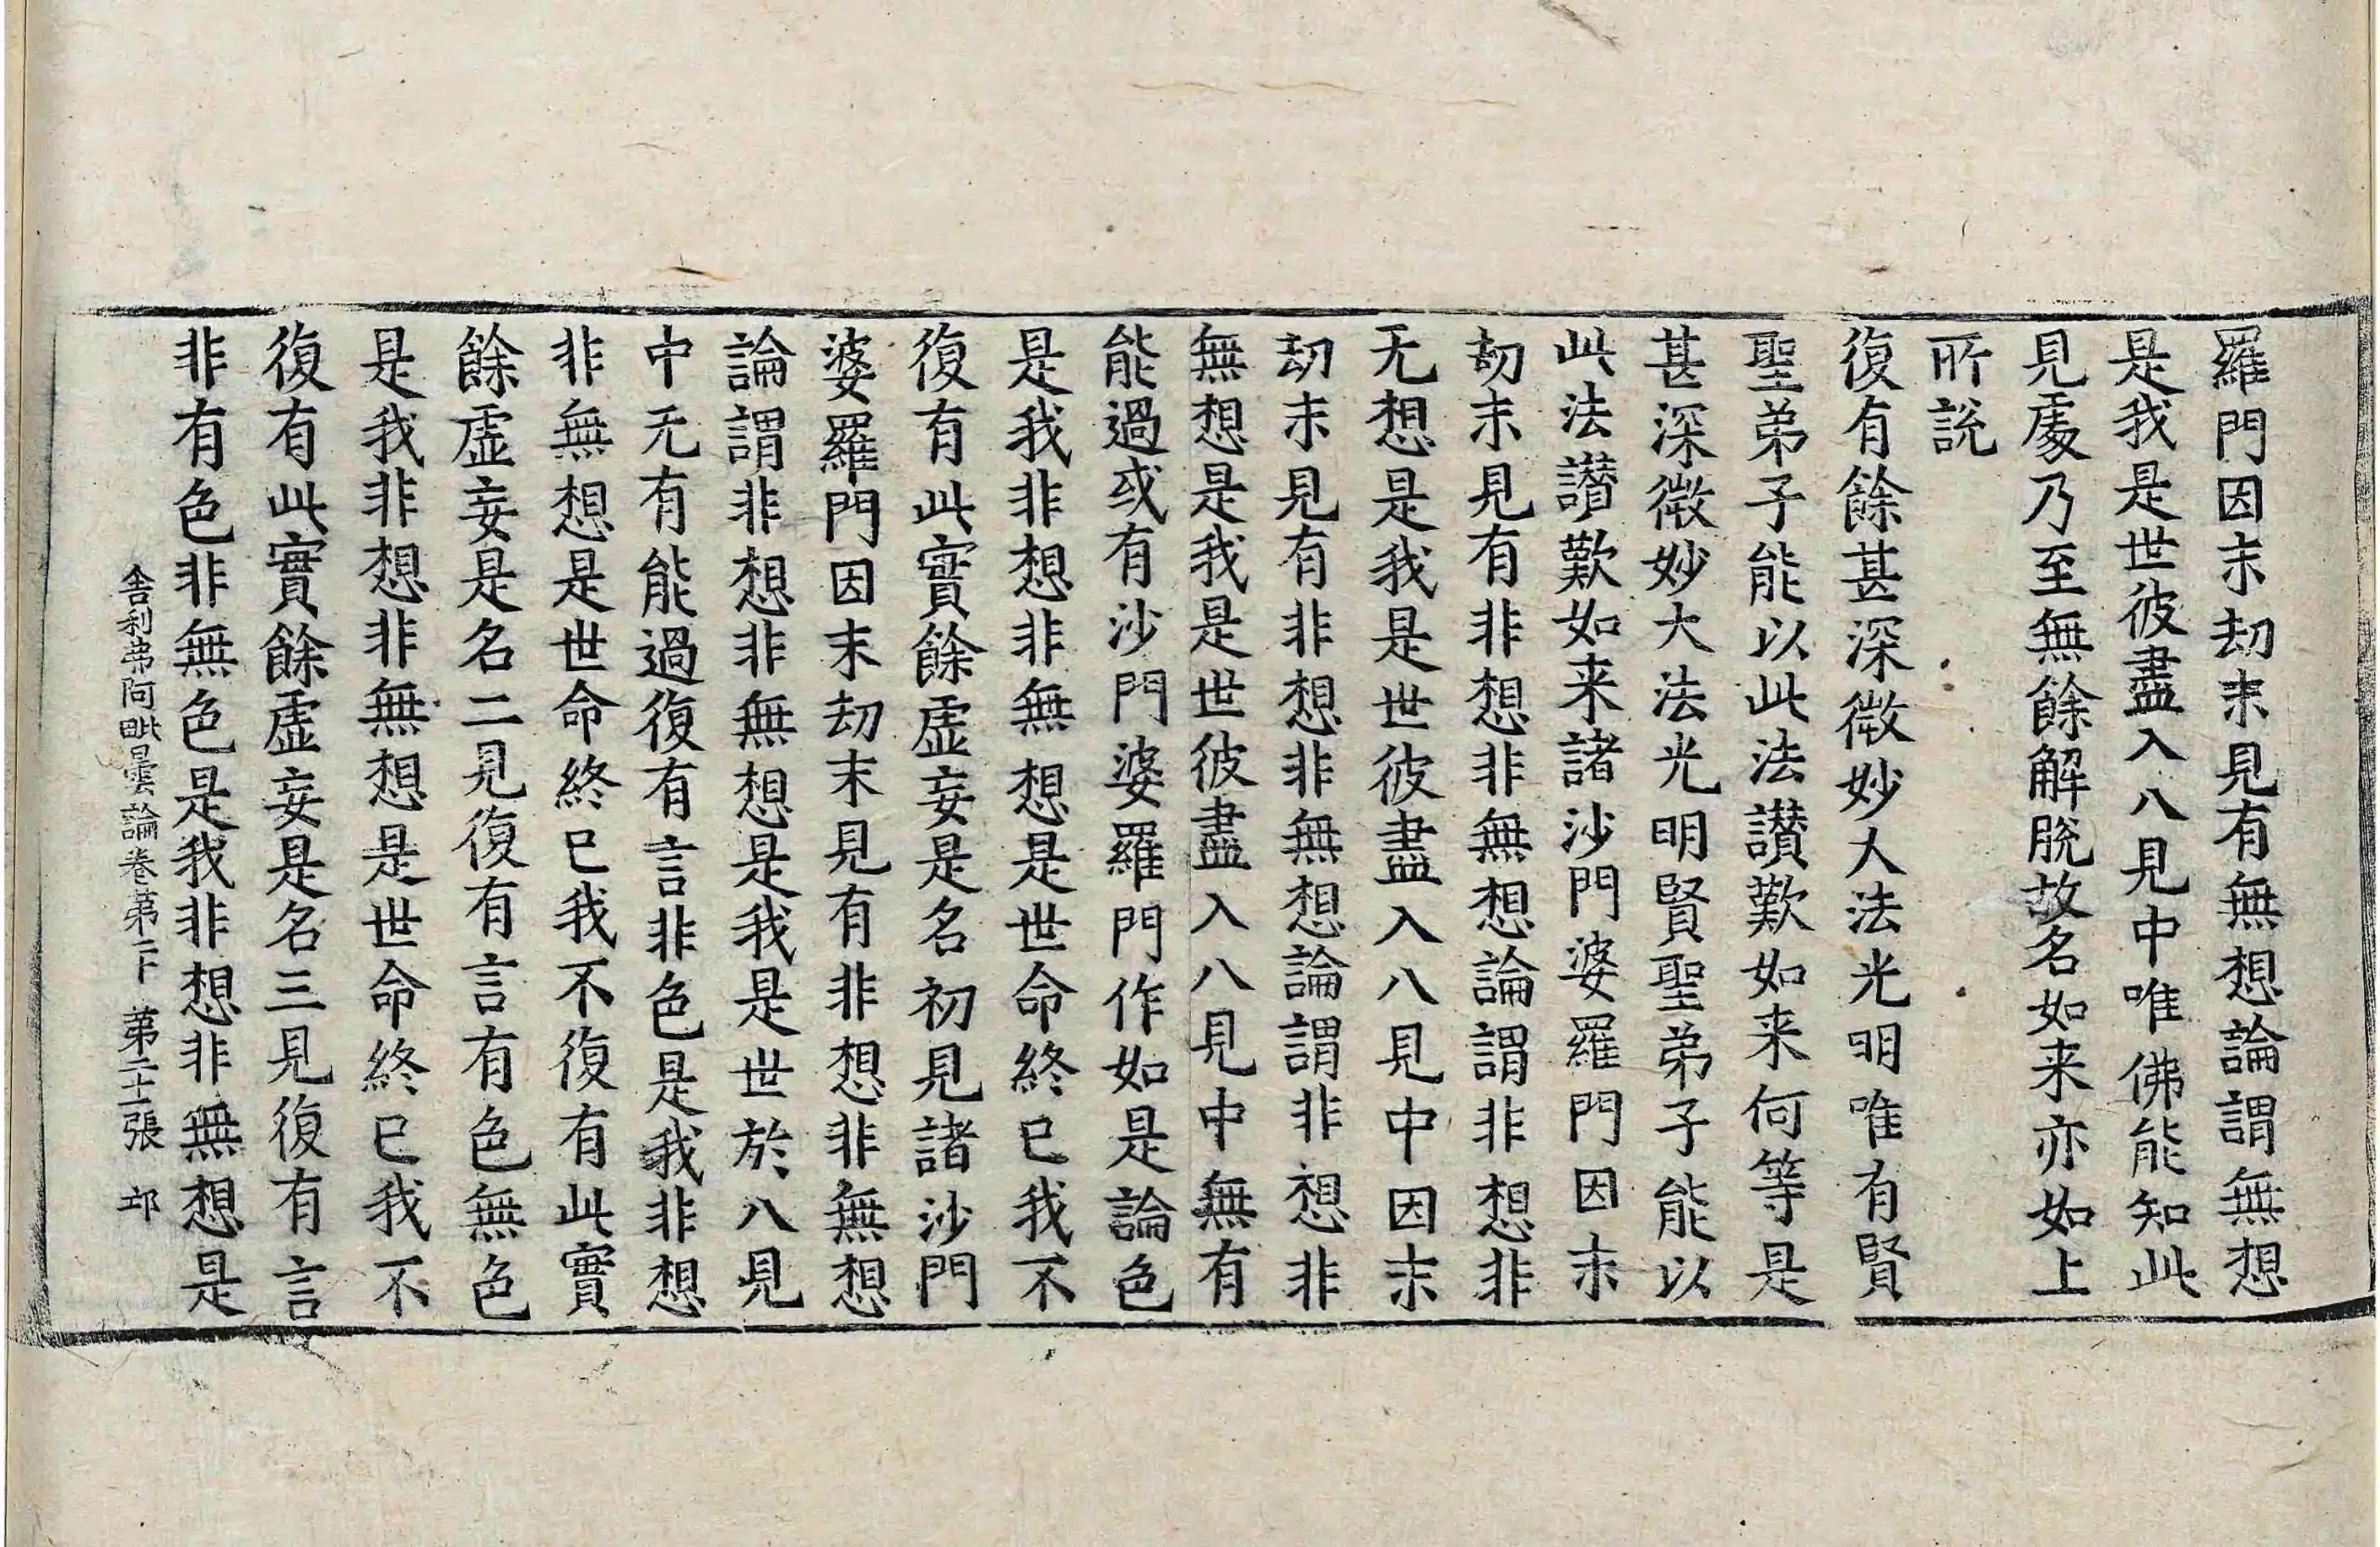 羅門因末劫末見有無想論謂無想
是我是世彼盡入八見中唯佛能知此
見處乃至無餘解脫故名如来亦如上
所說
復有餘甚深微妙大法光明唯有賢
聖弟子能以此法讃歎如来何等是
甚深微妙大法光明賢聖弟子能以
此法讃歎如来諸沙門婆羅門因末
劫末見有非想非無想論謂非想非
无想是我是世彼盡入八見中因末
劫末見有非想非無想論謂非想非
無想是我是世彼盡入八見中無有
能過或有沙門婆羅門作如是論色
是我非想非無想是世命終已我不
復有此實餘虛妄是名初見諸沙門
婆羅門因末劫末見有非想非無想
論謂非想非無想是我是世於八見
中无有能過復有言非色是我非想
非無想是世命終已我不復有此實
餘虛妄是名二見復有言有色無色
是我非想非無想是世命終已我不
復有此實餘虛妄是名三見復有言
非有色非無色是我非想非無想是
舍利弗阿毗曇論卷第二十 第二十張 邛